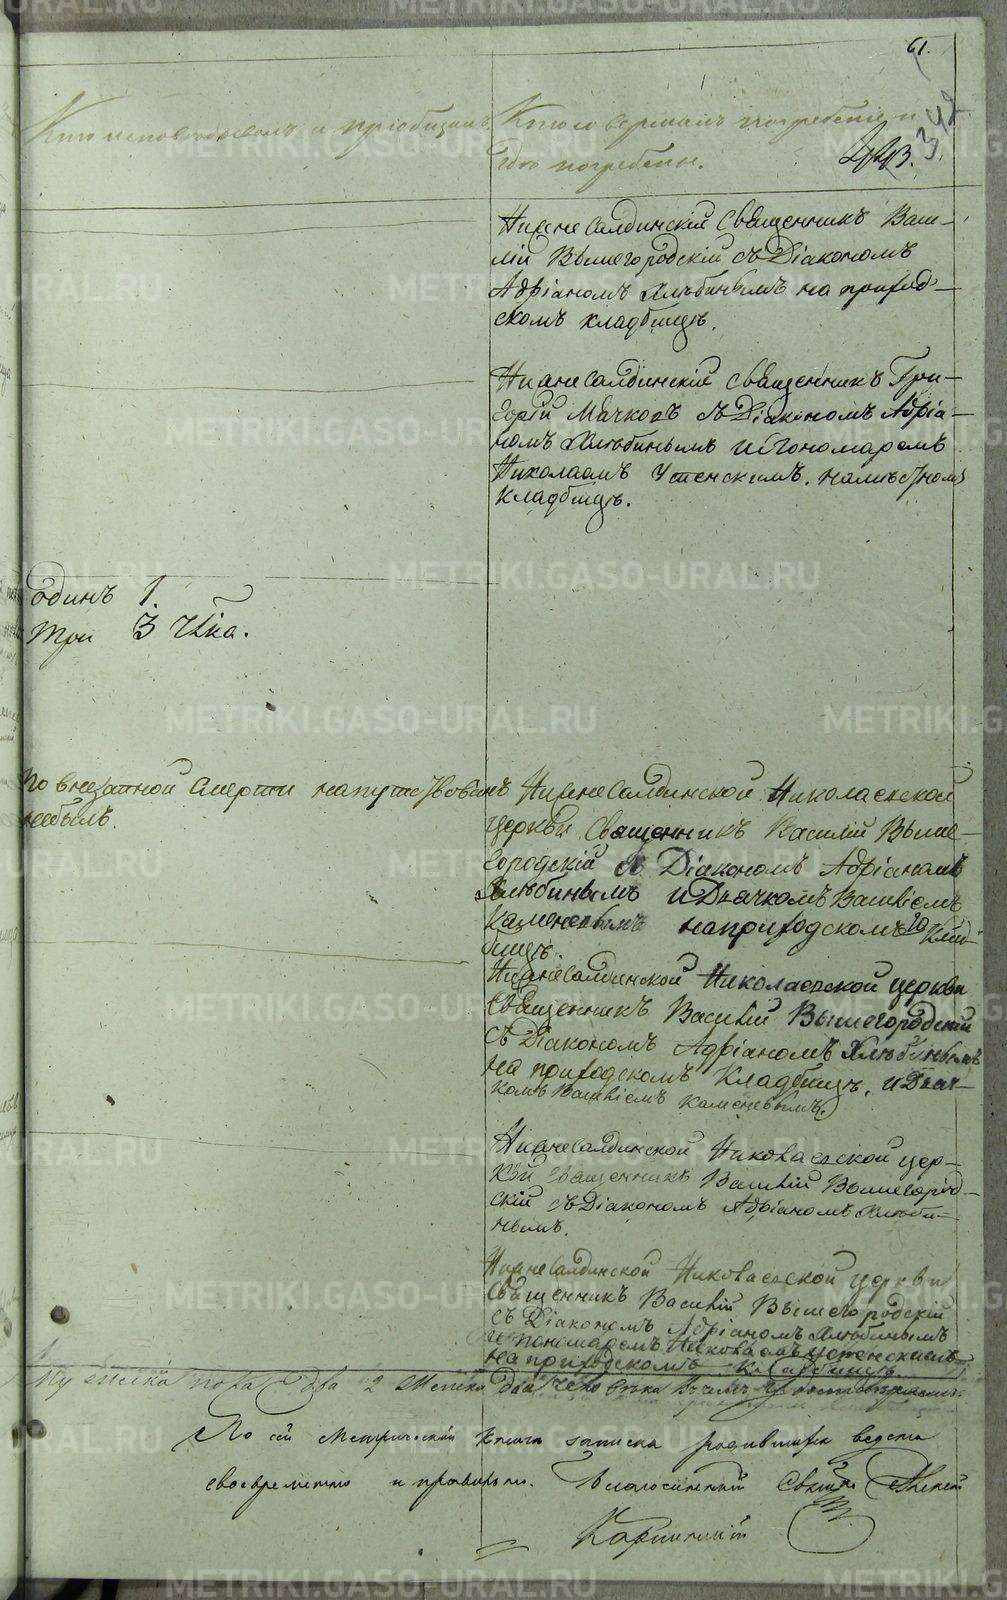 61.
342
Кто исповѣдывалъ и пріобщалъ.
Кто совершалъ погребеніе и
гдѣ погребены.
Нижнесалдинскій Священникъ Васи-
лій Вышегородскій съ Діакономъ
Адріаномъ Хлѣбинымъ на приход-
скомъ кладбищѣ.
Нижнесалдинскій священникъ Гри-
горій Мачковъ съ Діакономъ Адріа-
номъ Хлѣбинымъ и Пономаремъ
Николаемъ Успенскимъ. на мѣстномъ
кладбищѣ.
одинъ 1.
три 3 члка.
По внезапной смерти напутствованъ
небылъ.
Нижнесалдинской Николаевской
церкви Священникъ Василій Выше-
городскій съ Діакономъ Адріаномъ
Хлѣбинымъ и Дьячкомъ Василіемъ
Каменевымъ на приходскомъ клад-
бищѣ.
Нижнесалдинской Николаевской церкви
Священникъ Василій Вышегородскій
съ Діакономъ Адріаномъ Хлѣбинымъ
на приходскомъ Кладбищѣ. и Дьяч-
комъ Василіемъ Каменевымъ.
Нижнесалдинской Николаевской цер-
кви священникъ Василій Вышегород-
скій съ Діакономъ Адріаномъ Хлѣби-
нымъ.
Нижнесалдинской Николаевской церкви
Священникъ Василій Вышегородскій
съ Діакономъ Адріаномъ Хлѣбинымъ
и пономаремъ Николаемъ Успенскимъ
на приходскомъ Кладбищѣ.
Мужеска пола два 2 Женска два человѣка въ чемъ
По сей Метрической книгѣ записка родившихся ведена
своевременно и правильно. Благочинный Свящ Алексій
Карпинскій
METRIKI.GASO-URAL.RU